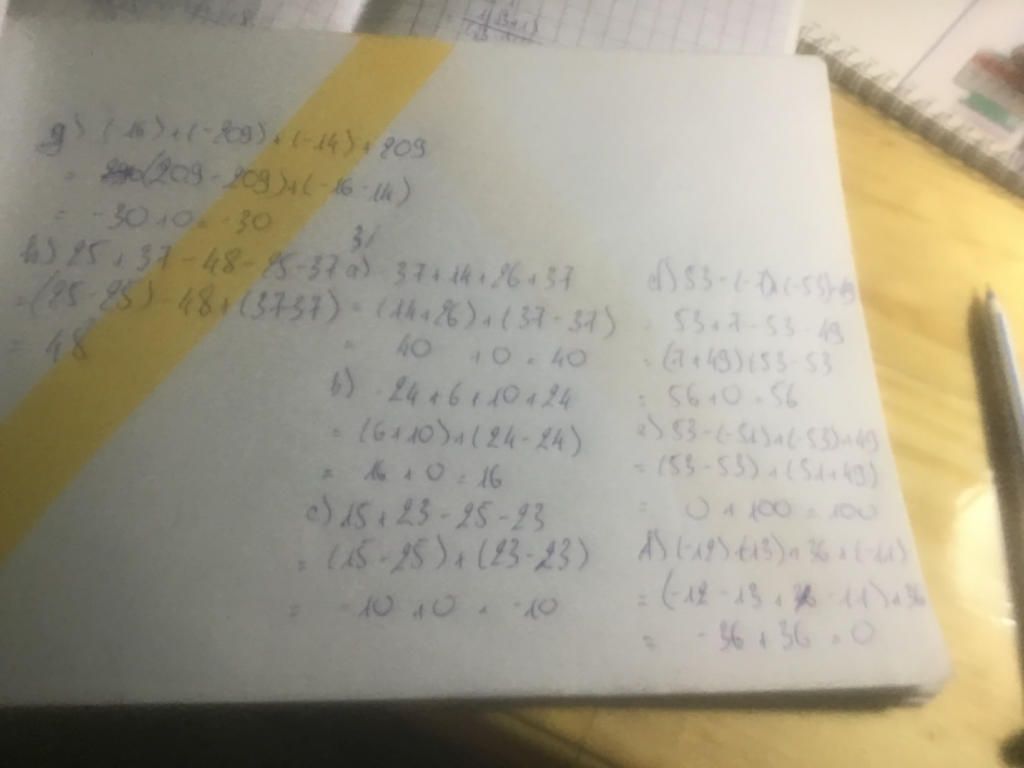 g) (-16)+(-209)+(-14)+209
= (209-209)+(-16-14)
= -30+0 = -30
h) 25+37-48-25-37
=(25-25)-48+(3737)
= 48
3/
a) -37+14+26+37
= (14+26)+(37-37)
= 40 +0 = 40
b) -24+6+10+24
= (6+10)+(24-24)
= 16+0=16
c) 15+23-25-23
= (15-25)+(23-23)
= -10+0 = -10
= 53+7-53-49
=(7+49)(53-53
= 56+0=56
e) 53-(-51)+(-53)+49
=(53-53)+(51+49)
= 0+100=100
+36+(-11)
=(-12-13+ -11)+36
= -36+36=0